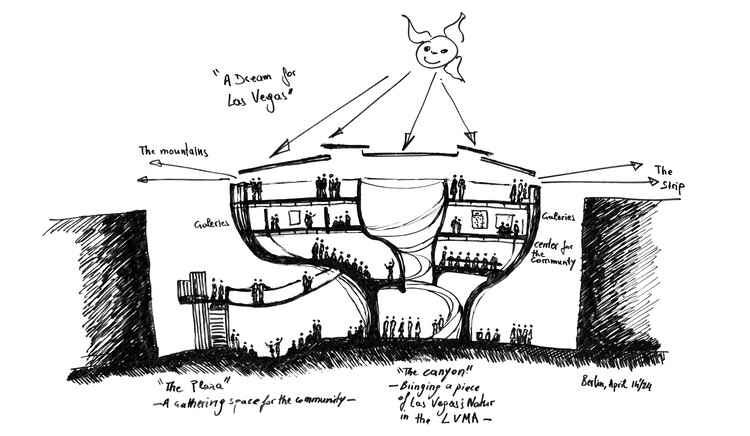 "A Dream for
Las Vegas"
The mountains
The
Strip
Galeries
Galeries
center for
the
Community
"The Plaza"
- A gathering space for the community -
"The canyon"
- Bringing a piece
of Las Vegas's Natur
in the LVMA -
Berlin, April 14/24